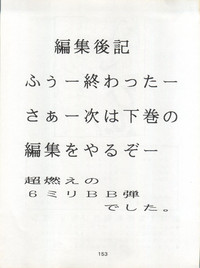 編集後記
ふぅー終わったー
さぁー次は下巻の
編集をやるぞー
超燃えの
６ミリＢＢ弾
でした。
153